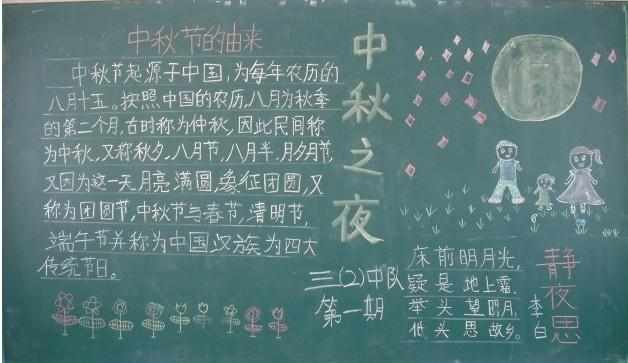 中秋节的由来
中秋节起源于中国,为每年农历的
八月十五。按照中国的农历,八月为秋季
的第二个月,古时称为仲秋,因此民间称
为中秋,又称秋夕、八月节,八月半,月夕月节,
又因为这一天月亮满圆,象征团圆,又
称为团圆节,中秋节与春节,清明节,
端午节并称为中国汉族为四大
传统节日。
中秋之夜
三(2)中队
第一期
静夜思
李白
床前明月光,
疑是地上霜,
举头望明月,
低头思故乡。